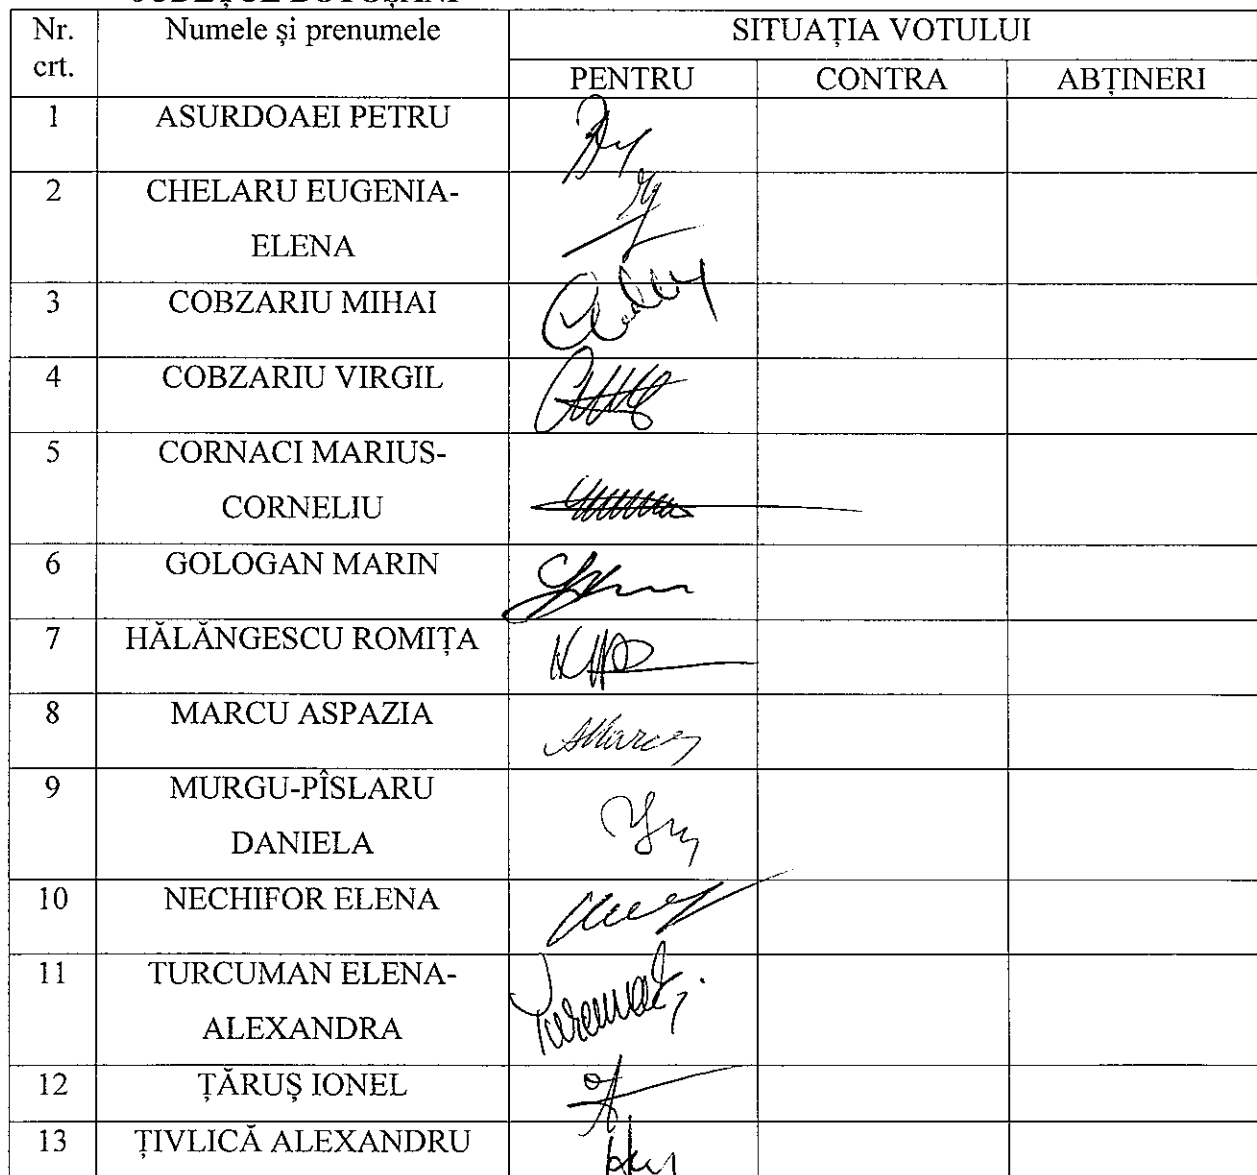 JUDEȚUL BOTOȘANI
Nr. crt. Numele și prenumele SITUAȚIA VOTULUI
PENTRU CONTRA ABȚINERI
1 ASURDOAEI PETRU
2 CHELARU EUGENIA-
ELENA
3 COBZARIU MIHAI
4 COBZARIU VIRGIL
5 CORNACI MARIUS-
CORNELIU
6 GOLOGAN MARIN
7 HĂLĂNGESCU ROMIȚA
8 MARCU ASPAZIA
AMarcu
9 MURGU-PÎSLARU
DANIELA
10 NECHIFOR ELENA
11 TURCUMAN ELENA-
ALEXANDRA
12 ȚĂRUȘ IONEL
13 ȚIVLICĂ ALEXANDRU